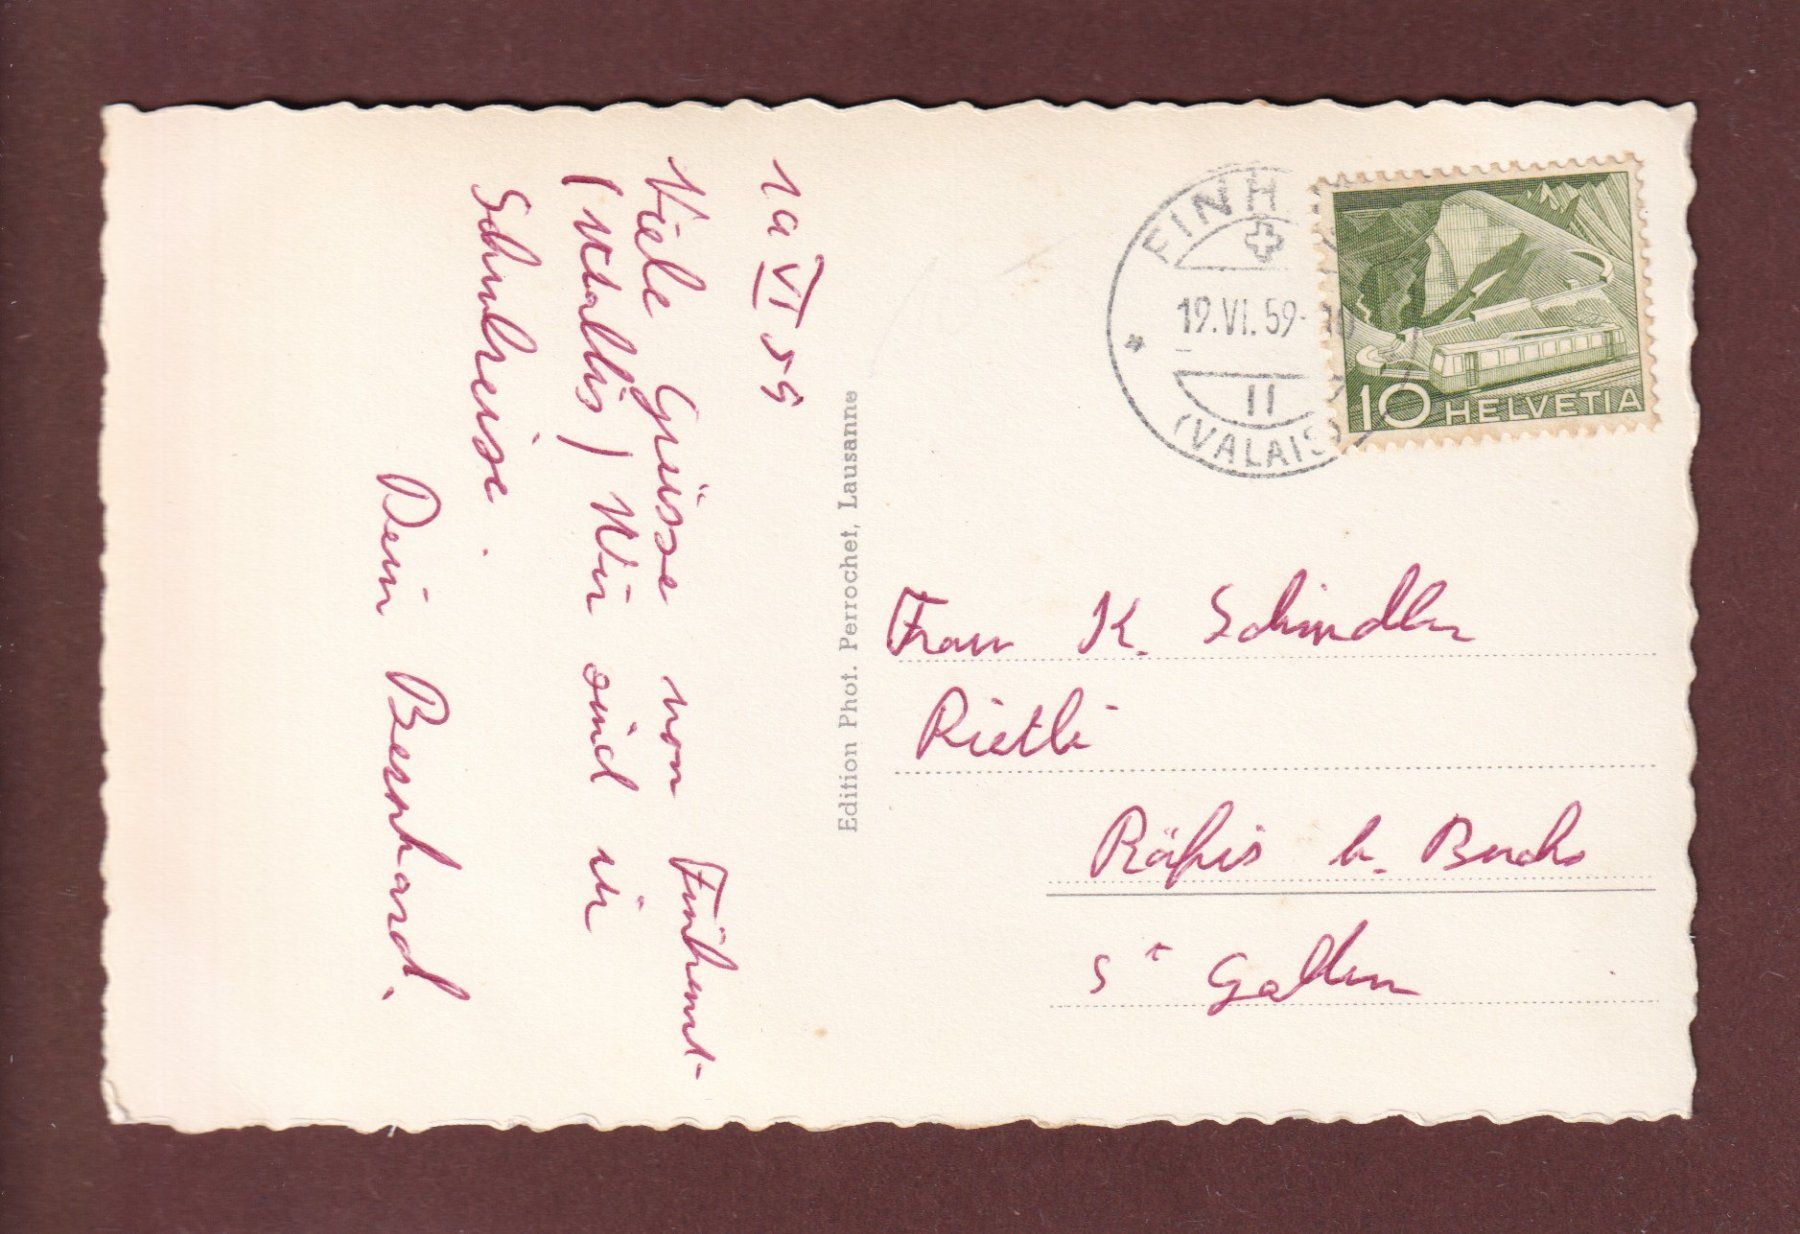 19 VI 59
Viele Grüsse von Finhaut
(Wallis) Wir sind in
Schulreise.
Dein Bernhard.
Edition Phot. Perrochet, Lausanne
FINH
19.VI.59-10
11
(VALAIS)
10 HELVETIA
Frau K. Schindler
Rietli
Räfis b. Buchs
St Gallen